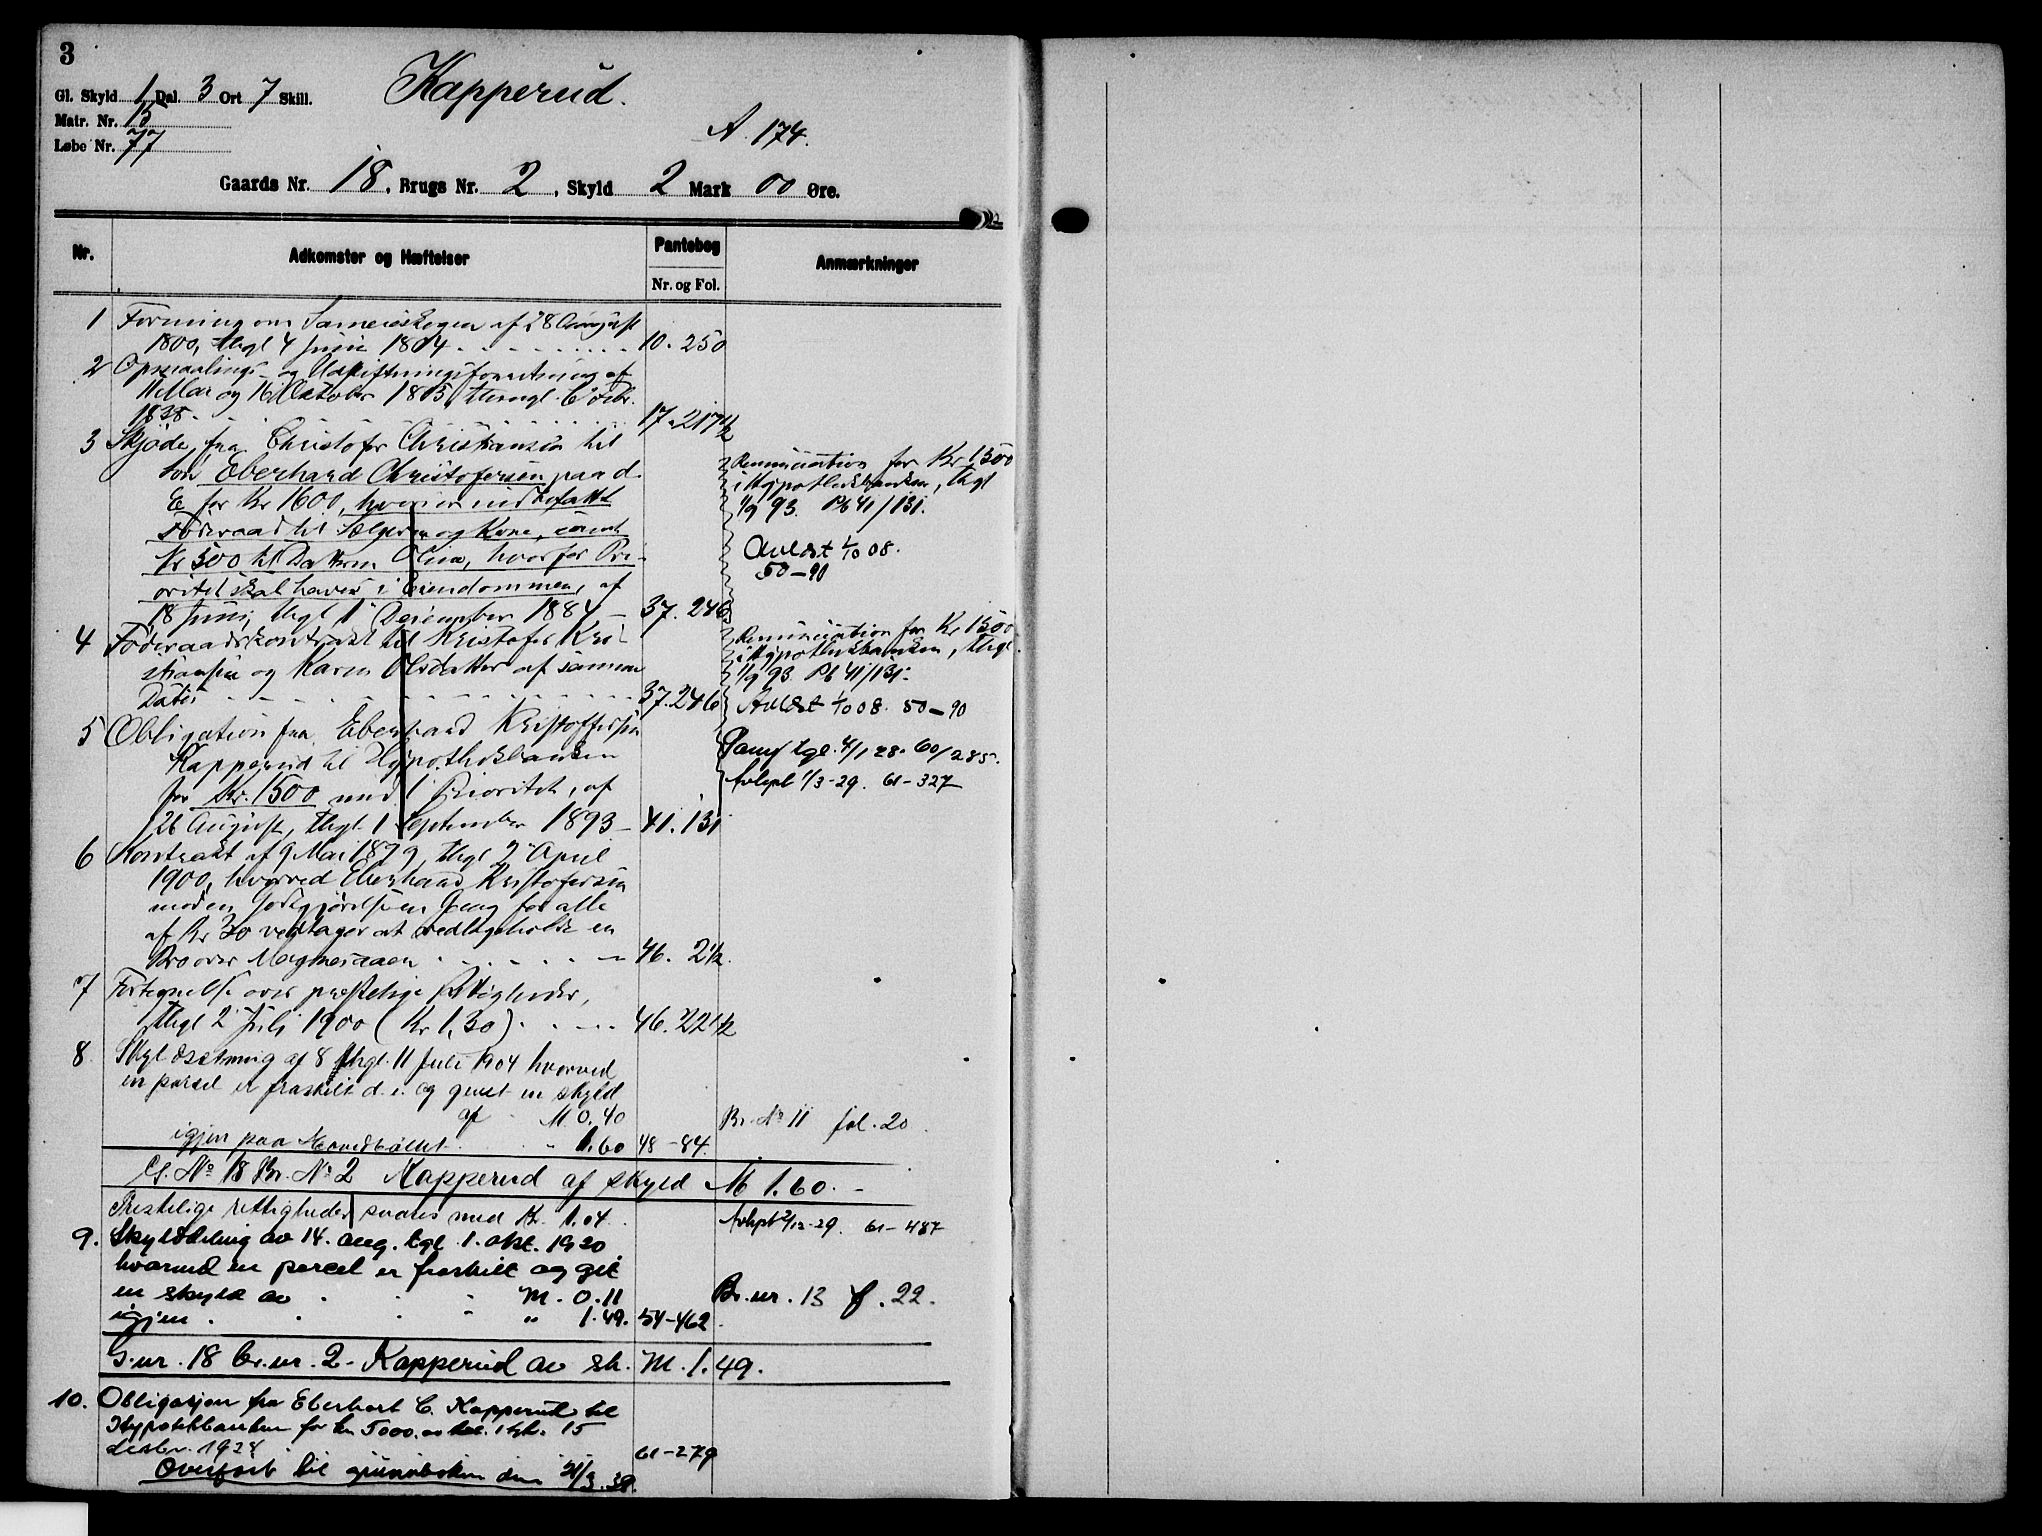 3
Gl. Skyld 1 Dal. 3 Ort 7 Skill.
Kapperud.
Matr. Nr. 15
Løbe Nr. 77
A. 174.
Gaards Nr. 18, Brugs Nr. 2, Skyld 2 Mark 00 Øre.
Nr. Adkomster og Hæftelser Pantebog Anmærkninger
Nr. og Fol.
1 Forening om Sameieskogen af 28 August
1800, thgl 4 Juni 1804 10. 250
2 Opmaalings- og Udskiftningsforretning af
Mai og 16 Oktober 1815, thingl. 6 Febr.
1838 17-217½
3 Skjøde fra Christofer Christiansen til
søn Eberhard Christofersen paa d.
E for Kr 1600, hvori er indbefattet
Føderaad til Sælgeren og Kone, samt
Kr 500 til Datteren Olina, hvorfor Pri-
oritet skal haves i Eiendommen, af
18 Juni, thgl 1 December 1884 – 37. 246
Renunciation for Kr 1500
i Hypothekbanken, thgl
1/9 93. Pb 41/131.
Avlæst 1/10 08.
50–90
4 Føderaadskontrakt til Kristofer Kri-
stiansen og Karen Olsdatter af samme
Dato 37. 246
Renunciation for Kr 1500
i Hypothekbanken, thgl.
1/9 93. Pb 41/131.
Avlæst 1/10 08. 50–90
5 Obligation fra Eberhard Kristoffersen
Kapperud til Hypothekbanken
for Kr. 1500 med 1 Prioritet, af
26 August, thgl. 1 September 1893 – 41. 131
tgl. 4/1 28. 60/285.
Avlyst 1/3-29. 61-327
6 Kontrakt af 9 Mai 1879, thgl 2 April
1900, hvorved Eberhard Kristofersen
mod en Godtgjørelse en Gang for alle
af Kr 30 vedtager at vedligeholde en
Bro over Magnesaaen – 46. 2½.
7 Fortegnelse over præstelige Rettigheder,
thgl 2 Juli 1900 (Kr 1,30) 46. 22½
8. Skyldsetning af 8 thgl. 11 Juli 1904 hvorved
en parsel er fraskilt d. e. og givet en skyld
af M 0.40
Br. No 11 fol. 20.
igjen paa Hovedbøllet 1.60 48-84.
G. No 18 Br. No 2 Kapperud af skyld M 1.60. –
Prestelige rettigheder svares med Kr. 1.04.
Avlyst 2/12-29. 61-487
9. Skylddeling av 14. aug. tgl. 1. okt. 1920
hvorved en parcel er fraskilt og git
en skyld av M. 0.11
Br. nr. 13 f. 22.
igjen " 1.49. 54-462.
G. nr. 18 br. nr. 2 - Kapperud av sk. M. 1.49.
10. Obligasjon fra Eberhart C. Kapperud til
Hypotekbanken for kr. 5000.00 15
desbr. 1928 61-279
Overført til grunnboken den 21/3.38.